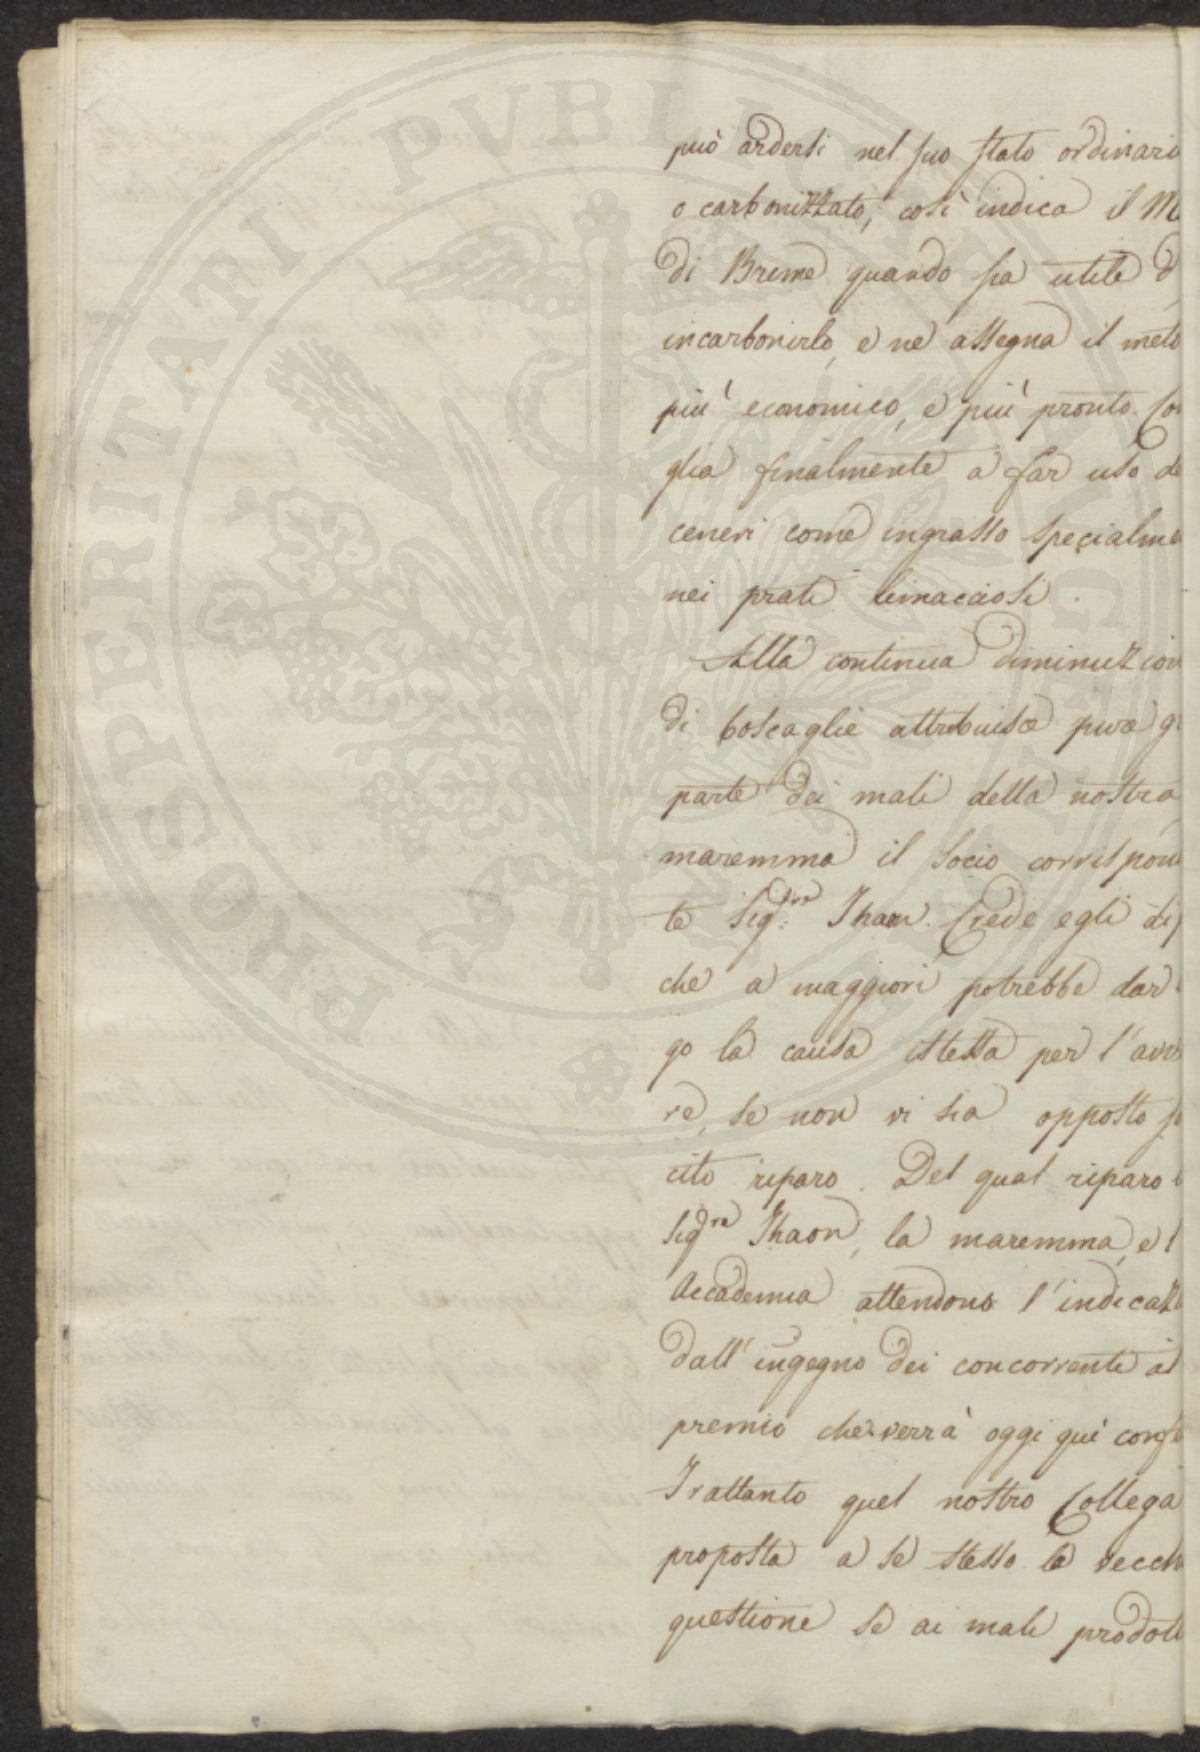 può ardersi nel suo stato ordinari
o carbonizzato, così indica il M
di Breme quando sia utile d
incarbonirlo, e ne assegna il meto
più economico, e più pronto. Con
glia finalmente a far uso de
ceneri come ingrasso specialme
nei prati limacciosi.
Alla continua diminuzion
di boscaglie attribuisce pure g
parte dei mali della nostra
maremma il Socio corrispon
te Sig:re Thaon. Crede egli di
che a maggiori potrebbe dar
go la causa istessa per l'avv
re, se non vi sia opposto
cito riparo. Del qual riparo
Sigre Thaon, la maremma, e l
Accademia attendono l'indicaz
dall'ingegno dei concorrenti al
premio che verrà oggi quì confe
Frattanto quel nostro Collega
proposta a se stesso la vecch
questione se ai mali prodott
PROSPERITATI PUBLICAE